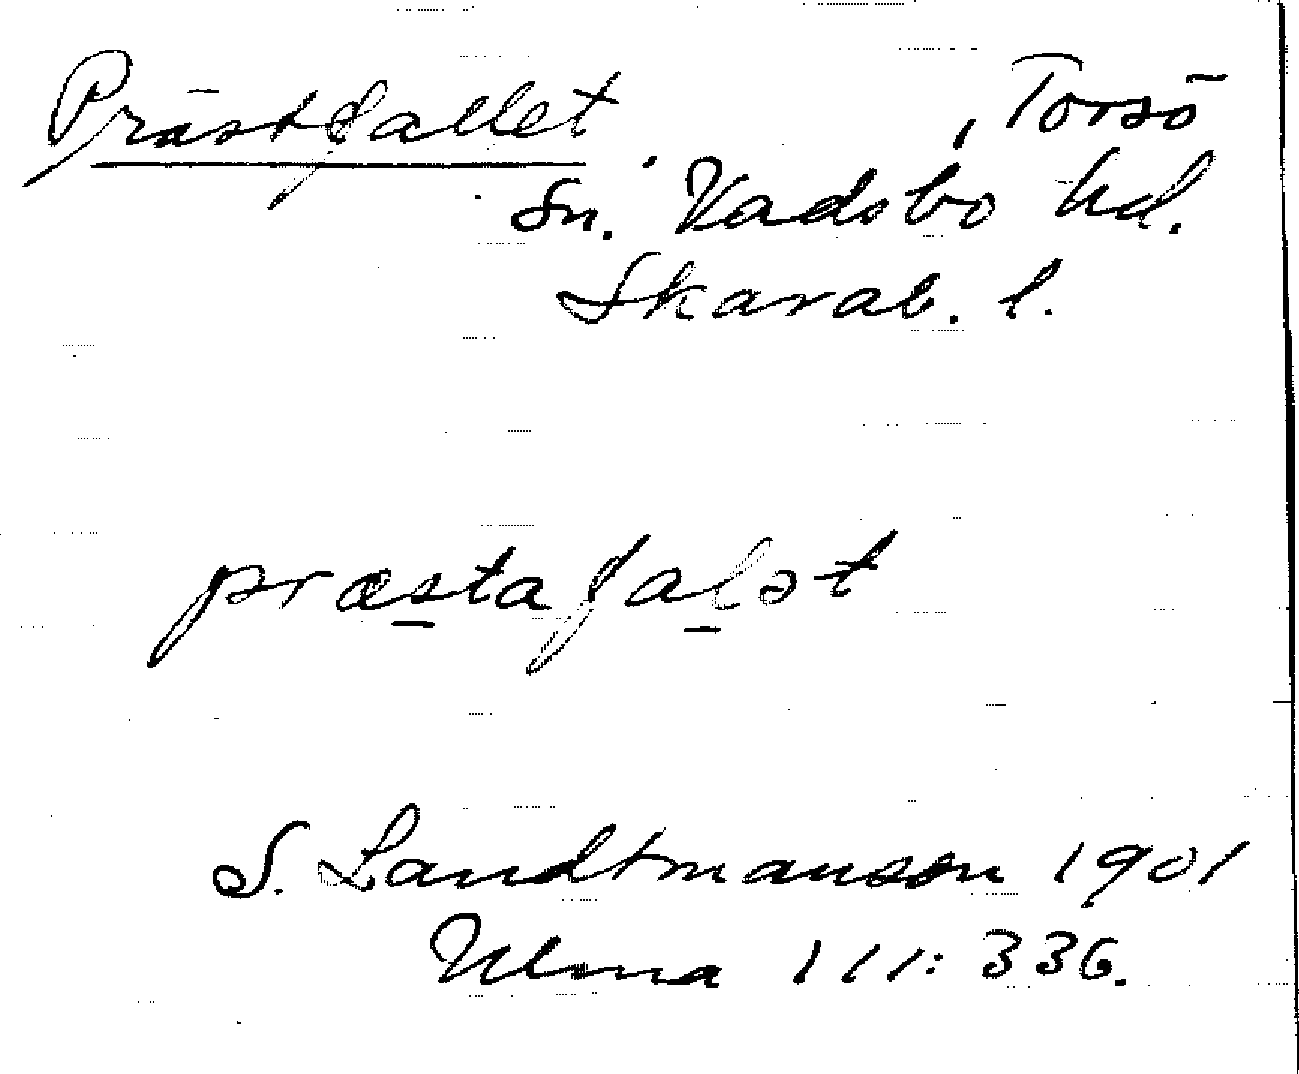 Prästfallet , Torsö
Sn. Vadsbo hd.
Skarab. l.
præstafalət
S. Landtmanson 1901
Ulma 111:336.